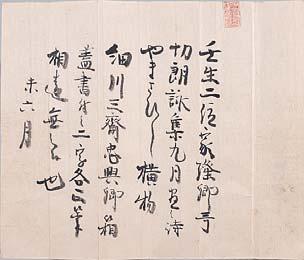 壬生二位家隆卿弓
切朗詠集九月盡詩
やまさひし横物
細川三齋忠興卿箱
蓋書付之二字各正筆
相違無之者也
未六月